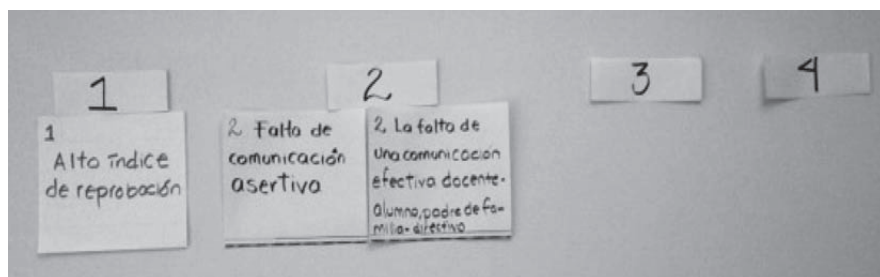 1
2
3
4
1
Alto índice
de reprobación
2 Falta de
comunicación
asertiva
2 La falta de
una comunicación
efectiva docente-
alumno, padre de fa-
milia-directivo